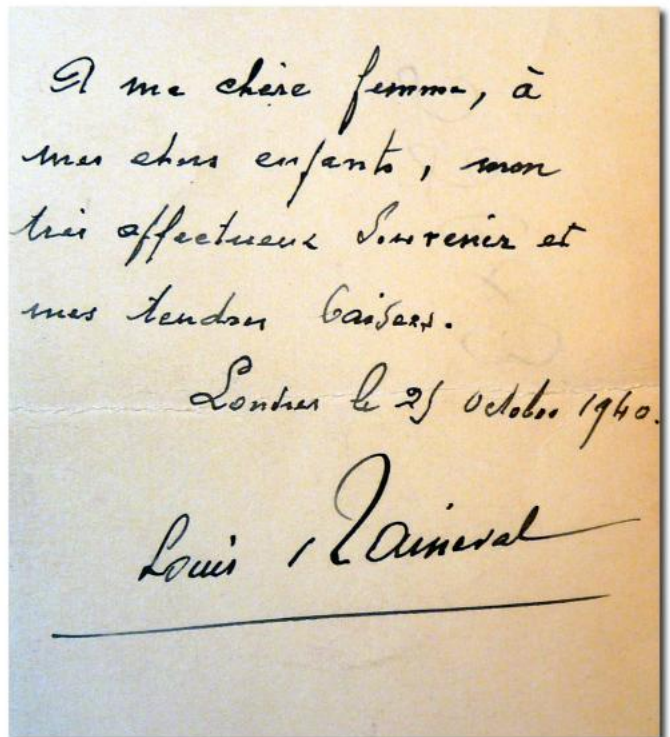 A ma chère femme, à
mes chers enfants, mon
très affectueux Souvenir et
mes tendres baisers.
Londres le 25 Octobre 1940.
Louis Raineval